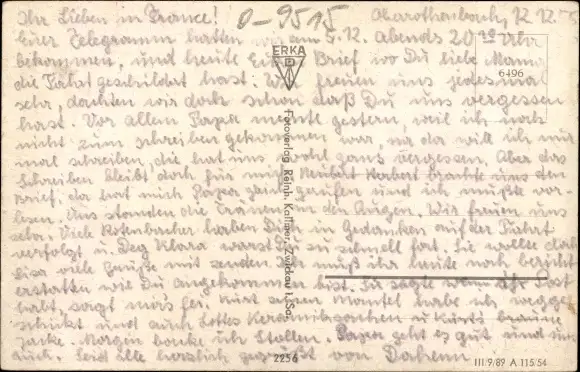 Ihr Lieben in France! 0-9515 Oberrothenbach, 12.12.
Euer Telegramm hatten wir am 5.12. Abends 20 10 Uhr
bekommen, und heute Brief wo Du liebe Mama
die Fahrt geschildert hast. Wir freuen uns jedesmal
sehr, dachten wir doch schon daß Du uns vergessen
hast. Vor allem Papa meinte gestern, weil ich noch
nicht zum schreiben gekommen war, na da will ich mir
mal schreiben, die hat uns wohl ganz vergessen. Aber das
Schreiben bleibt doch für mich. Herbert brachte uns den
Brief, da hat mich Papa gerufen und ich mußte vor-
lesen. Uns standen die Tränen in den Augen. Wir freuen uns
sehr. Viele Rotenbacher haben Dich in Gedanken auf der Fahrt
verfolgt u. Klara warst Du zu schnell fort. Sie wollte doch
Lisa viele Grüße mit senden. Ich muß ihr heute noch bericht
erstatten wie Du angekommen bist. Sie sagte wenn Ihr Post
habt, sagt Kurt seinen Mantel habe ich wegge-
schickt und auch Lottes Keramiksachen u. Kurts braune
Jacke. Morgen backe ich Stollen. Papa geht es gut und uns
auch. Seid alle herzlich gegrüßt von Daheim
ERKA
6496
Fotoverlag Reinh. Kallmer, Zwickau i. Sa.
2256
III/9/89 A 115/54